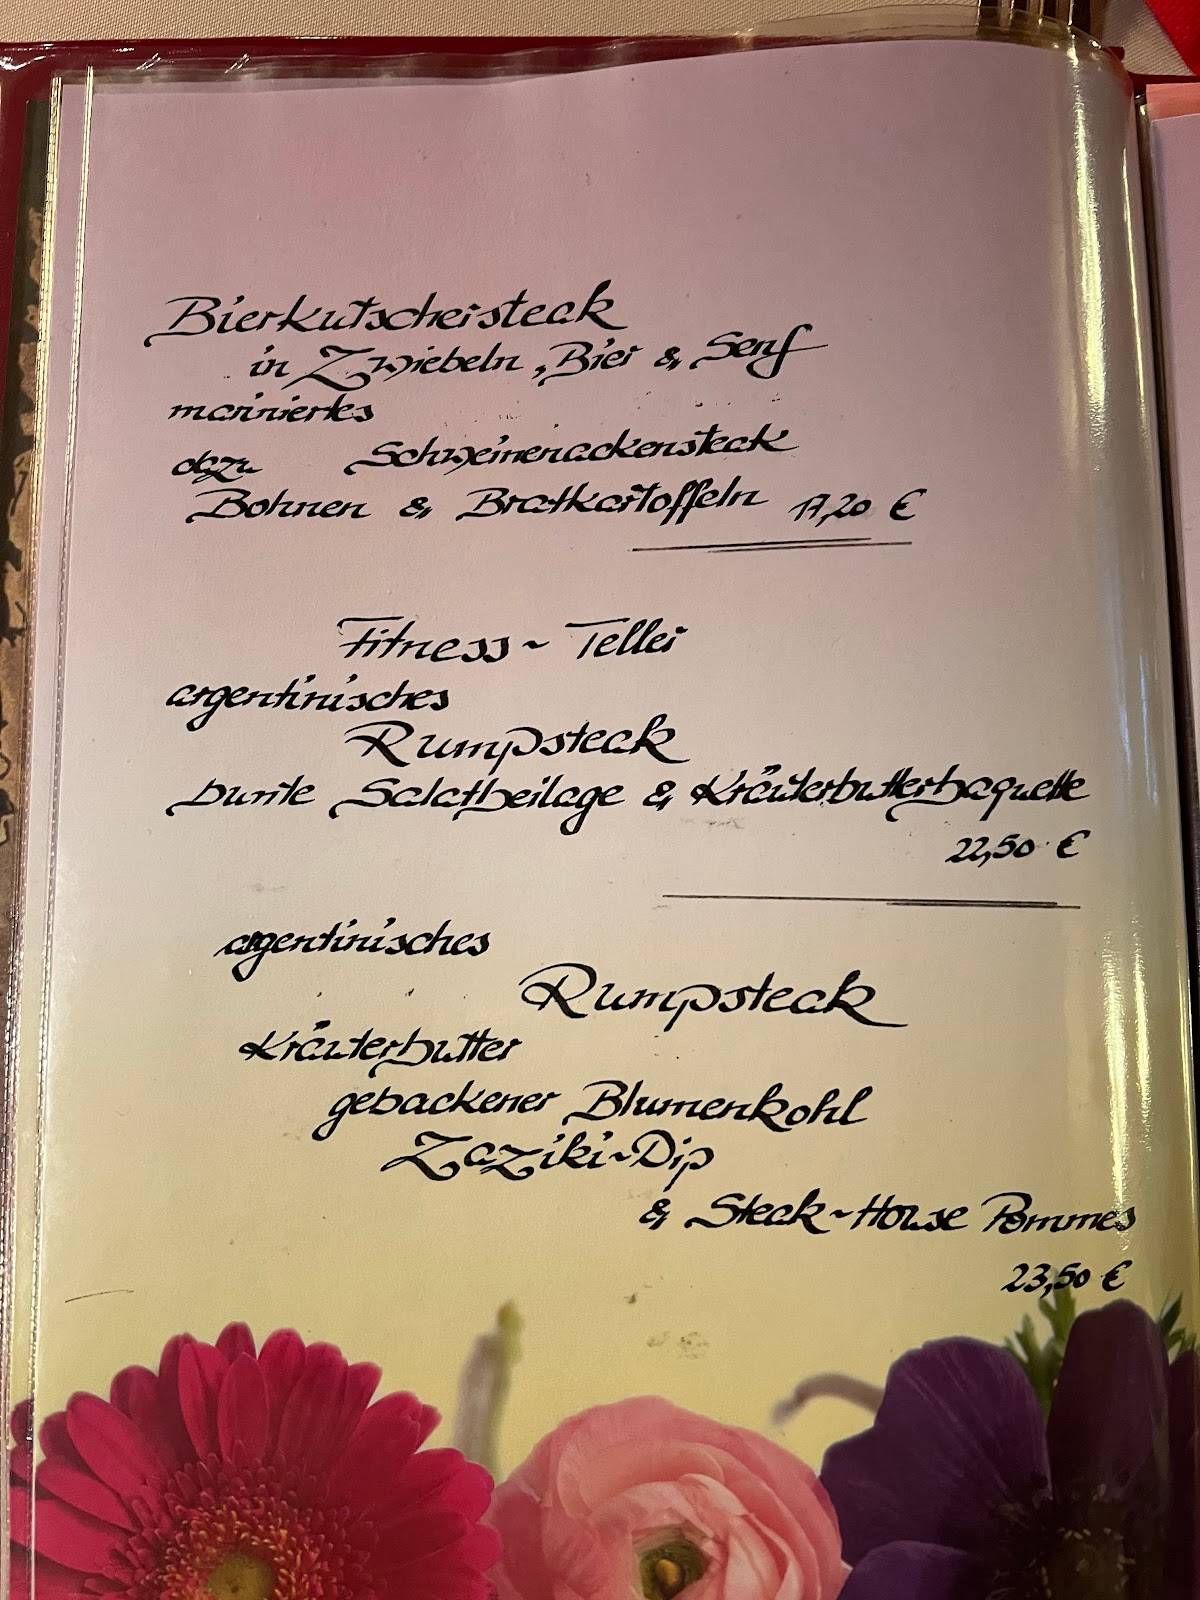 Bierkutschersteak
in Zwiebeln, Bier & Senf
mariniertes
dazu Schweinenackensteak
Bohnen & Bratkartoffeln 17,20 €
Fitness~Teller
argentinisches
Rumpsteak
bunte Salatbeilage & Kräuterbutterbaquette
22,50 €
argentinisches
Rumpsteak
Kräuterbutter
gebackener Blumenkohl
ZaZiki~Dip
& Steak~House Pommes
23,50 €